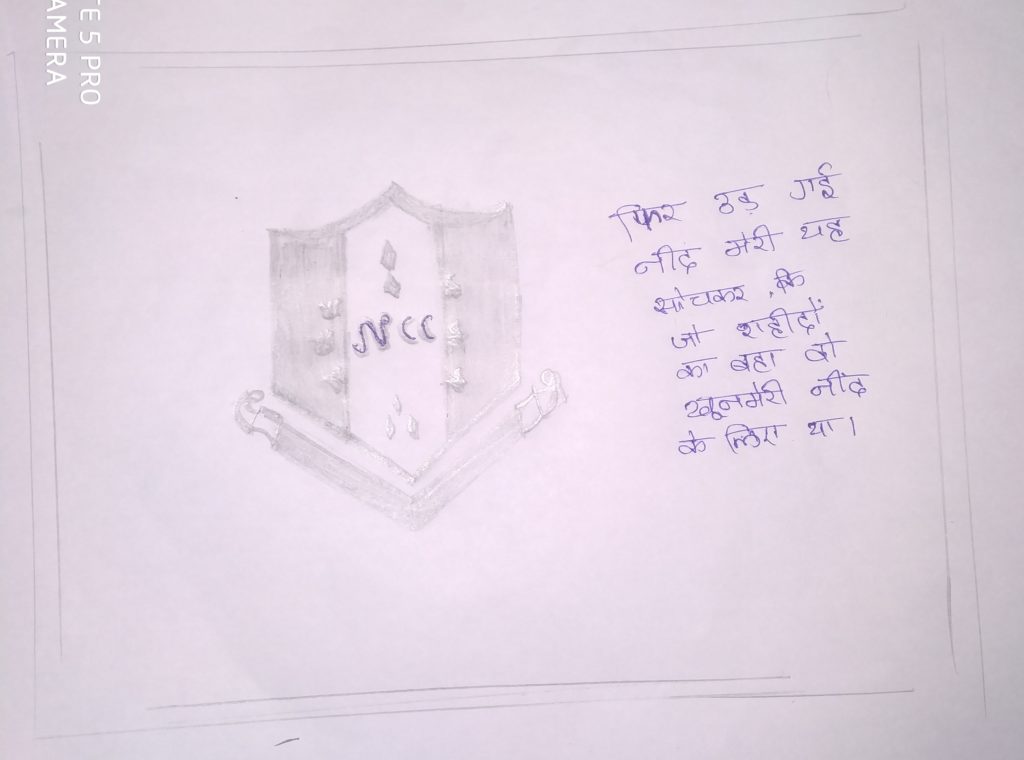 TE 5 PRO
AMERA
NCC
फिर उड़ गई
नींद मेरी यह
सोचकर, कि
जो शहीदों
का बहा वो
खून मेरी नींद
के लिए था।